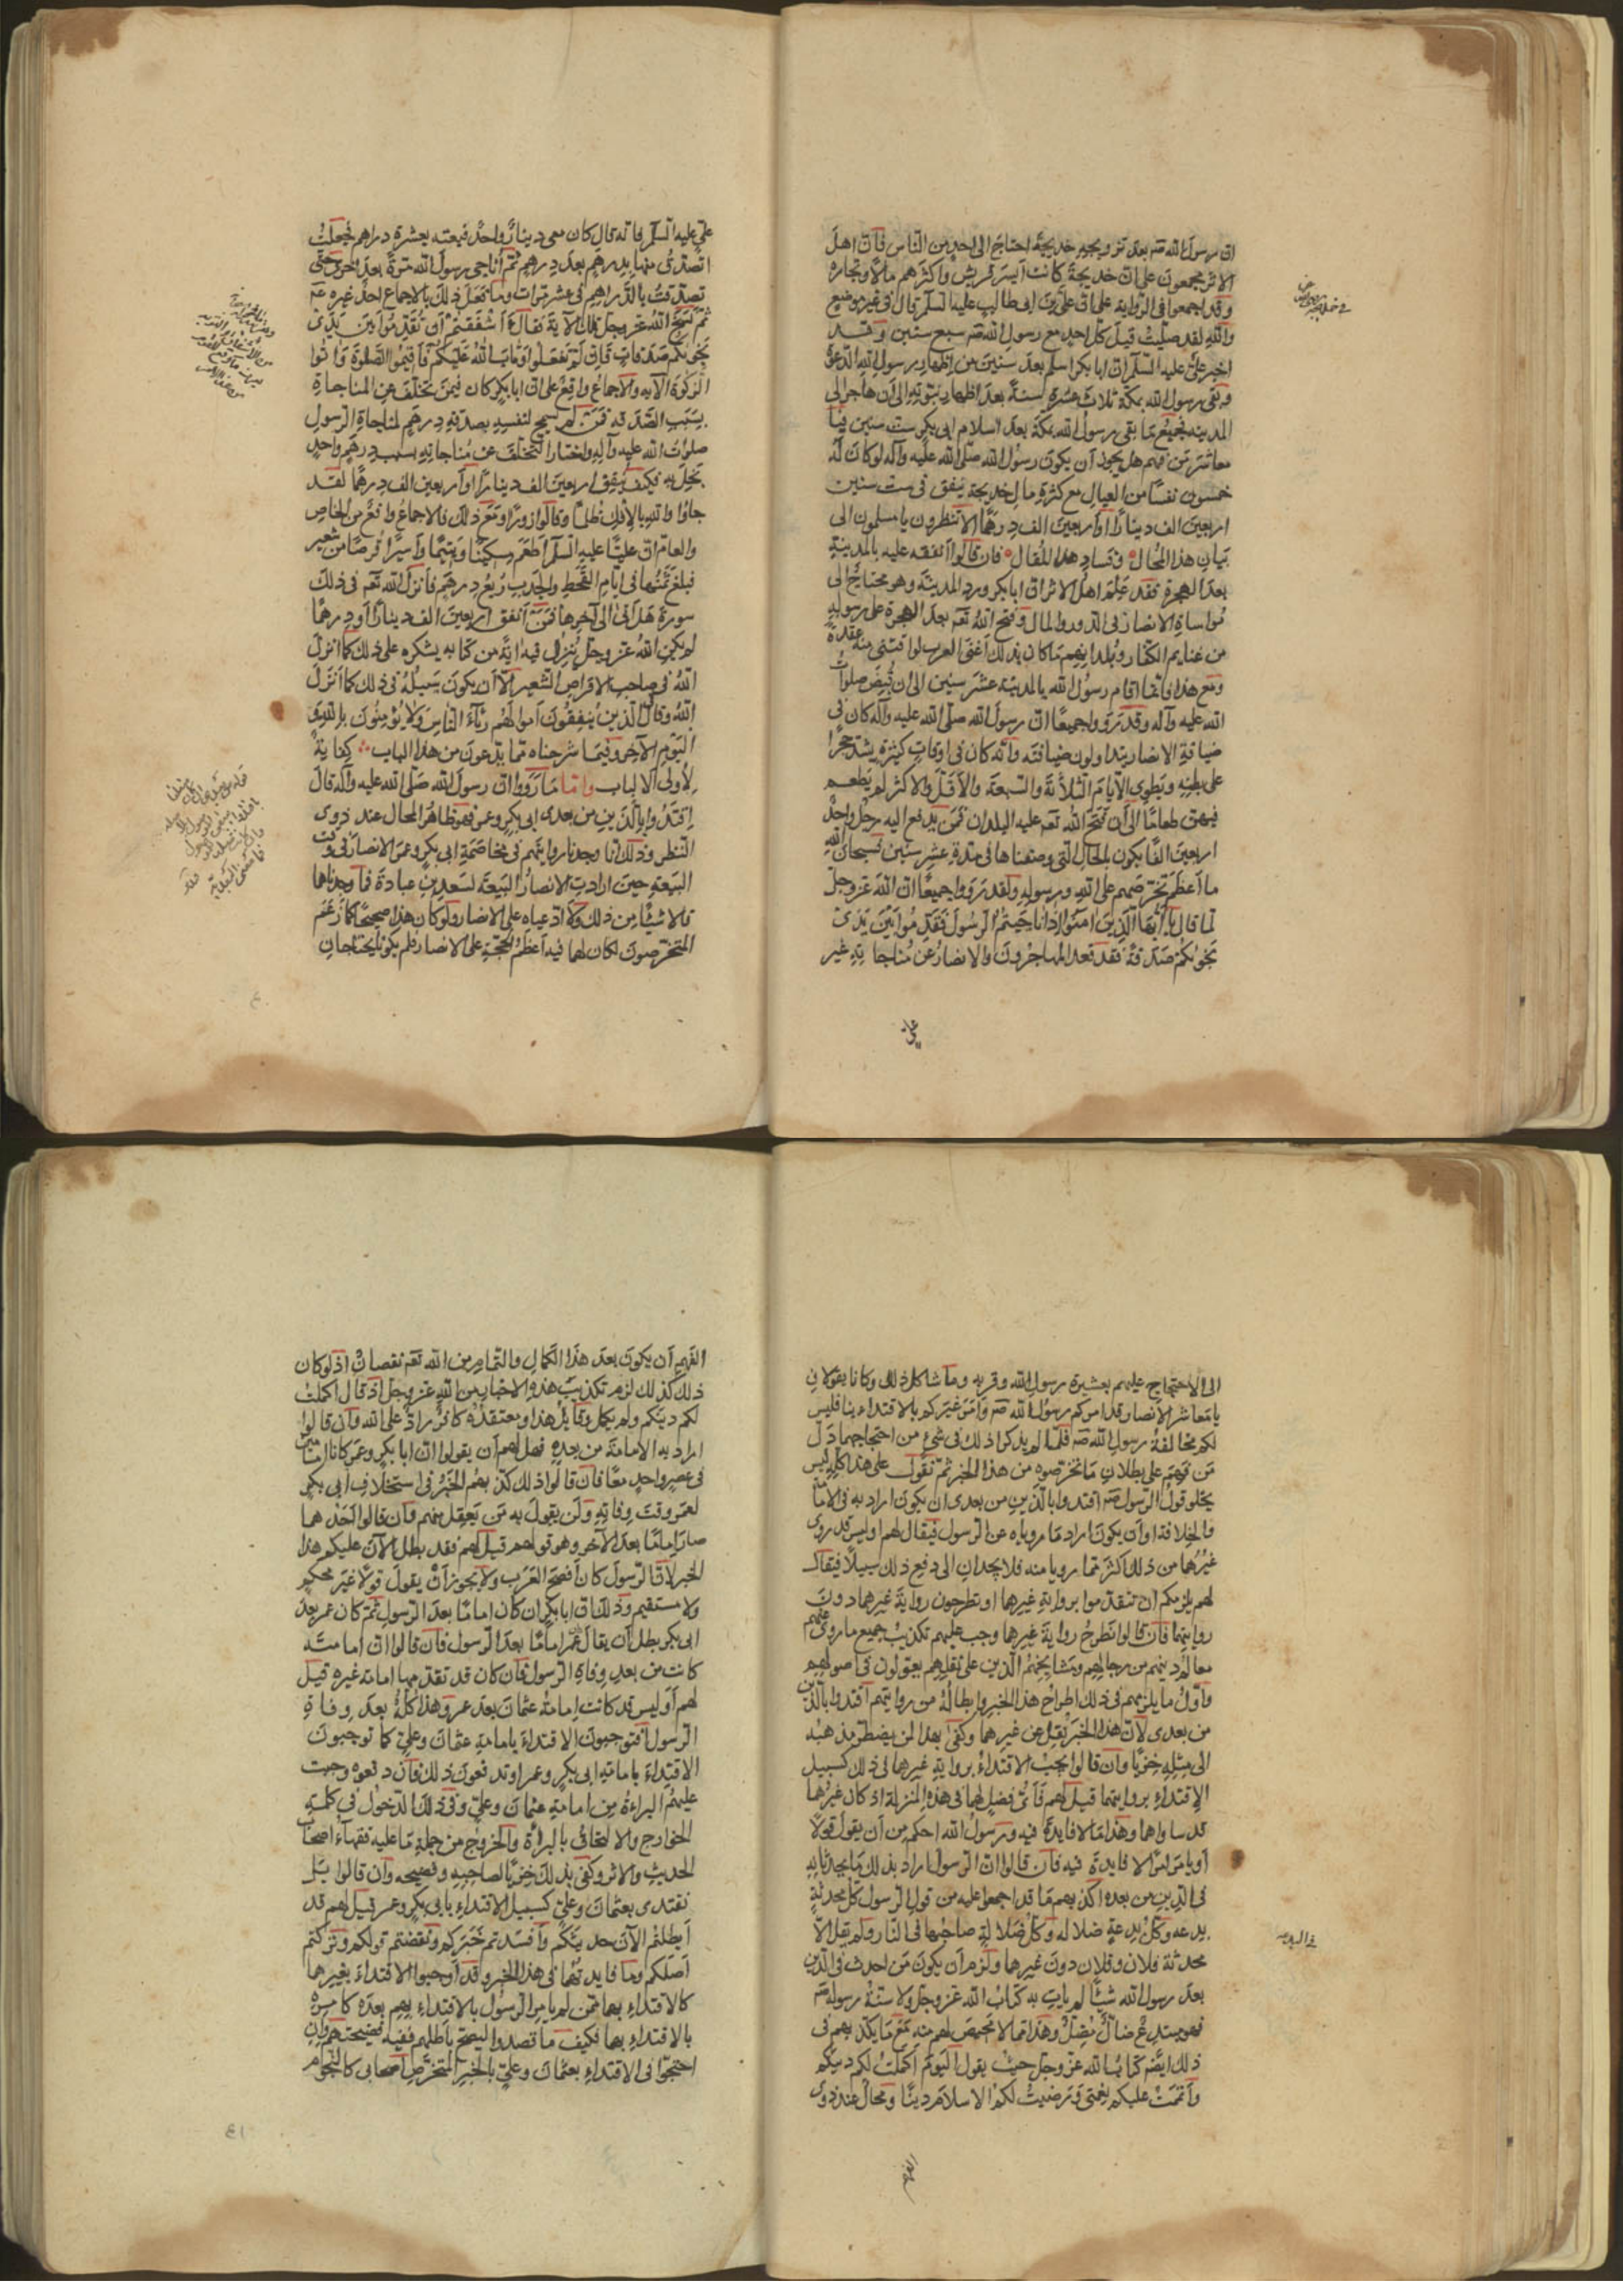 ان رسول الله صم بعد تزويجه خديجة احتاج الى احد من الناس فان اهل
الاثر مجمعون على ان خديجة كانت ايسر قريش واكثرهم مالا وتجارة
وقد اجمعوا فى الرواية على ان على بن ابى طالب عليه السلم قال فى غير موضع
والله لقد صليت قبل كل احد مع رسول الله صم سبع سنين وقد
اخبر على عليه السلم ان ابا بكر اسلم بعد سنين من اظهار رسول الله الدعوة
وبقى رسول الله بمكة ثلاث عشرة سنة بعد اظهار نبوته الى ان هاجر الى
المدينه فجميع ما بقى رسول الله بمكة بعد اسلام ابى بكر ست سنين فيا
معاشر من فهم هل يجوز ان يكون رسول الله صلى الله عليه وآله لو كان له
خمسون نفسا من العيال مع كثرة مال خديجة ينفق فى ست سنين
اربعين الف دينارا او اربعين الف درهما الا تنظرون يا مسلمون الى
بيان هذا المحال وفساد هذا المقال فان قالوا انفقه عليه بالمدينة
بعد الهجرة فقد علم اهل الاثر ان ابا بكر ورد المدينة وهو محتاج الى
مواساة الانصار فى الدور والمال وفتح الله تعم بعد الهجرة على رسوله
من غنايم الكفار وبلدانهم ما كان بذلك اغنى العرب لو اقتنى منه عقدة
ومع هذا فانما اقام رسول الله بالمدينة عشر سنين الى ان قبض صلوات
الله عليه وآله وقد رووا جميعا ان رسول الله صلى الله عليه وآله كان فى
ضيافة الانصار يتداولون ضيافته وانه كان فى اوقات كثيرة يشد حجرا
على بطنه ويطوى الايام الثلاثة والسبعة والاقل والاكثر لم يطعم
فيهن طعاما الى ان فتح الله تعم عليه البلدان فمن يدفع اليه رجل واحد
اربعين الفا يكون بالحال التى وصفناها فى مدة عشر سنين سبحان الله
ما اعظم تخرصهم على الله ورسوله ولقد رووا جميعا ان الله عز وجل
لما قال يا ايها الذين امنوا اذا ناجيتم الرسول فقدموا بين يدى
نجويكم صدقة فقد قعد المهاجرون والانصار عن مناجاته غير
على
على عليه السلم فانه قال كان معى دينار واحد فبعته بعشرة دراهم فجعلت
اتصدق منها بدرهم بعد درهم ثم اناجى رسول الله مرة بعد اخرى حتى
تصدقت بالدراهم فى عشر مرات وما فعل ذلك بالاجماع احد غيره عم
ثم نسخ الله عز وجل تلك الآية فقال ءاشفقتم ان تقدموا بين يدى
نجويكم صدقات فان لم تفعلوا وتاب الله عليكم فاقيموا الصلوة واتوا
الزكوة الآيه والاجماع واقع على ان ابا بكر كان فيمن تخلف عن المناجاة
بسبب الصدقه فمن لم يسمح لنفسه بصدقة درهم لمناجاة الرسول
صلوات الله عليه وآله واختار التخلف عن مناجاته بسبب درهم واحد
بخل به فكيف ينفق اربعين الف دينارا او اربعين الف درهما لقد
جاؤا والله بالافك ظلما وقالوا زورا ومع ذلك فالاجماع واقع من الخاص
والعام ان عليا عليه السلم اطعم مسكينا ويتيما واسيرا قرصا من شعير
فبلغ ثمنها فى ايام القحط والجدب ربع درهم فانزل الله تعم فى ذلك
سورة هل اتى الى آخرها فمن انفق اربعين الف دينارا او درهما
لم يكن الله عز وجل ينزل فيه اية من كتابه يشكره على ذلك كما انزل
الله فى صاحب الاقراص الشعير الا ان يكون سبيله فى ذلك كما انزل
الله وقال الذين ينفقون اموالهم رئاء الناس ولا يؤمنون بالله ولا
اليوم الآخر وفيما شرحناه مما يدعون من هذا الباب كفاية
لاولى الالباب واما ما رووا ان رسول الله صلى الله عليه وآله قال
اقتدوا بالذين من بعدى ابى بكر وعمر فهو ظاهر المحال عند ذوى
النظر وذلك انا وجدنا روايتهم فى مخاصمة ابى بكر وعمر الانصار فى وقت
البيعة حين ارادت الانصار البيعة لسعد بن عبادة فما وجدناهما
قالا شيئا من ذلك ولا ادعياه على الانصار ولو كان هذا صحيحا كما زعم
المتخرصون لكان لهما فيه اعظم الحجة على الانصار فلم يكونا يحتاجان
الى الاحتجاج عليهم بعشيرة رسول الله وقربه وما شاكل ذلك وكانا يقولان
يا معاشر الانصار قد امركم رسول الله صم وامر غيركم بالاقتداء بنا فليس
لكم مخالفة رسول الله صم فلما لم يذكرا ذلك فى شئ من احتجاجهما دل
من فهم على بطلان ما تخرصوه من هذا الخبر ثم نقول على هذا كله ليس
يخلو قول الرسول صم اقتدوا بالذين من بعدى ان يكون اراد به فى الامامة
فالخلافة او ان يكون اراد ما روياه عن الرسول فيقال لهم اوليس قد روى
غيرهما من ذلك اكثر مما رويا منه فلا يجدان الى دفع ذلك سبيلا فيقال
لهم يلزمكم ان تتقدموا برواية غيرهما او تطرحون رواية غيرهما دون
روايتهما فان قالوا نطرح رواية غيرهما وجب عليهم تكذيب جميع ما روى عنهم
معالم دينهم من رجالهم ومشايخهم الذين على نقلهم يعولون فى اصولهم
واول ما يلزمهم فى ذلك اطراح هذا الخبر وابطاله من روايتهم اقتدوا بالذين
من بعدى لان هذا الخبر نقل عن غيرهما وكفى بهذا لمن يضطر مذهبه
الى مثله خزيا وان قالوا يجب الاقتداء برواية غيرهما فى ذلك كسبيل
الاقتداء بروايتهما قيل لهم فاى فضل لهما فى هذه المنزلة اذ كان غيرهما
قد ساواهما وهذا مما لا فايدة فيه ورسول الله احكم من ان يقول قولا
او يامر امرا لا فايدة فيه فان قالوا ان الرسول اراد بذلك ما يحدثانه
فى الدين من بعده اكذبهم ما قد اجمعوا عليه من قول الرسول كل محدثة
بدعه وكل بدعة ضلاله وكل ضلالة صاحبها فى النار ولم يقل الا
محدثة فلان وفلان دون غيرهما ولزم ان يكون من احدث فى الدين
بعد رسول الله شيئا لم يات به كتاب الله عز وجل ولا سنة رسوله صم
فهو مبتدع ضال مضل وهذا مما لا محيص لهم منه مع ما يكذبهم فى
ذلك ايضم كتاب الله عز وجل حيث يقول اليوم اكملت لكم دينكم
واتممت عليكم نعمتى ورضيت لكم الاسلام دينا ومحال عند ذوى
الفهم
الفهم ان يكون بعد هذا الكمال والتمام من الله تعم نقصان اذ لو كان
ذلك كذلك لزم تكذيب هذه الاخبار من الله عز وجل اذ قال اكملت
لكم دينكم ولم يكمل وقايل هذا ومعتقده كافر راد على الله وان قالوا
اراد به الامامة من بعده فهل لهم ان يقولوا ان ابا بكر وعمر كانا امامين
فى عصر واحد معا فان قالوا ذلك كذبهم الخبر فى استخلاف ابى بكر
لعمر وقت وفاته ولن يقول به من يعقل منهم فان قالوا احدهما
صار اماما بعد الآخر وهو قولهم قيل لهم فقد بطل الآن عليكم هذا
الخبر لان الرسول كان افصح العرب ولا يجوز ان يقول قولا غير محكم
ولا مستقيم وذلك ان ابا بكر ان كان اماما بعد الرسول ثم كان عمر بعد
ابى بكر بطل ان يقال عمر اماما بعد الرسول فان قالوا ان امامته
كانت من بعد وفاة الرسول فان كان قد تقدمها امامة غيره قيل
لهم اوليس قد كانت امامة عثمان بعد عمر وهذا كله بعد وفاة
الرسول افتوجبون الاقتداء بامامة عثمان وعلى كما توجبون
الاقتداء بامامة ابى بكر وعمر او تدفعون ذلك فان دفعوه وجبت
عليهم البراءة من امامة عثمان وعلى وفى ذلك الدخول فى كلمة
الخوارج والالتحاق بالبراة والخروج من جملة ما عليه فقهاء اصحاب
الحديث والاثر وكفى بذلك خزيا لصاحبه وفضيحه وان قالوا بل
نقتدى بعثمان وعلى كسبيل الاقتداء بابى بكر وعمر قيل لهم قد
ابطلتم الآن حديثكم وافسدتم خبركم ونقضتم قولكم وتركتم
اصلكم وما فايدتهما فى هذا الخبر وقد اوجبوا الاقتداء بغيرهما
كالاقتداء بهما ممن لم يامر الرسول بالاقتداء بهم بعده كامره
بالاقتداء بهما فكيف ما قصدوا ليصح باطلهم ففيه فضيحتهم وان
احتجوا فى الاقتداء بعثمان وعلى بالخبر المتخرص اصحابى كالنجوم